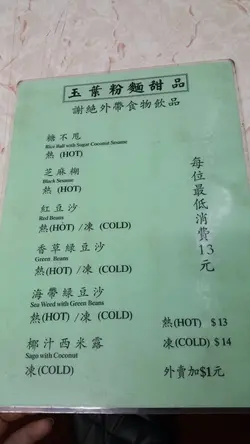 玉葉粉麵甜品
謝絕外帶食物飲品
糖不甩
Rice Ball with Sugar Coconut Sesame
熱 (HOT)
芝麻糊
Black Sesame
熱 (HOT)
紅豆沙
Red Beans
熱(HOT) /凍 (COLD)
香草綠豆沙
Green Beans
熱(HOT) /凍 (COLD)
海帶綠豆沙
Sea Weed with Green Beans
熱(HOT) /凍 (COLD)
椰汁西米露
Sago with Coconut
凍(COLD)
每位最低消費13元
熱(HOT) $ 13
凍(COLD) $ 14
外賣加$1元